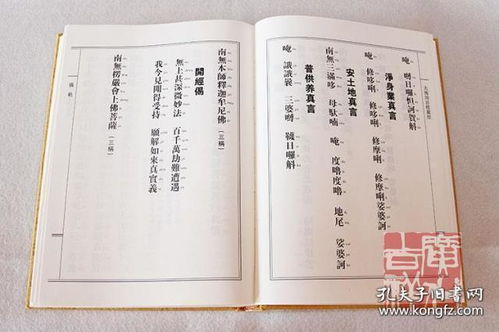 唵 嚩日囉怛訶賀斛
淨身業真言
唵 修哆唎 修哆唎 修摩唎 修摩唎 娑婆訶
安土地真言
南無三滿哆 母馱喃 唵 度嚕度嚕 地尾 娑婆訶
普供养真言
唵 誐誐曩 三婆嚩 韈日囉斛
南無本師釋迦牟尼佛（三稱）
開經偈
無上甚深微妙法 百千萬劫難遭遇
我今見聞得受持 願解如來真實義
南無楞嚴會上佛菩薩（三稱）
孔夫子旧书网
www.kongfz.com